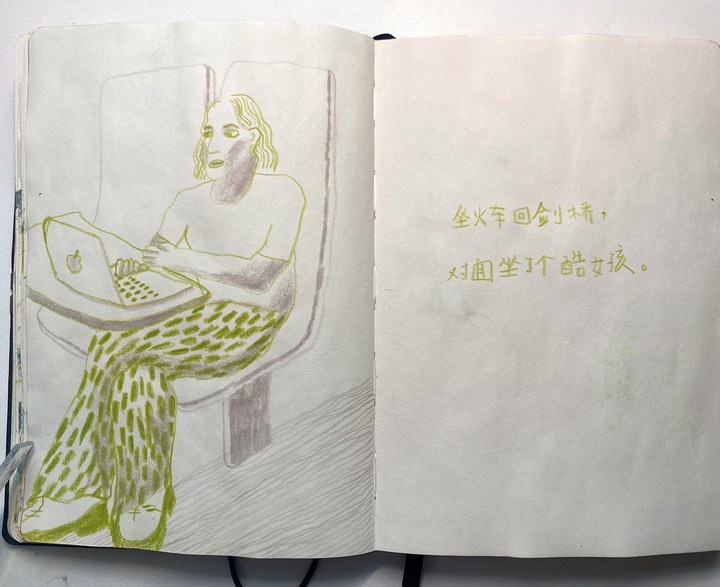 坐火车回剑桥，
对面坐了个酷女孩。